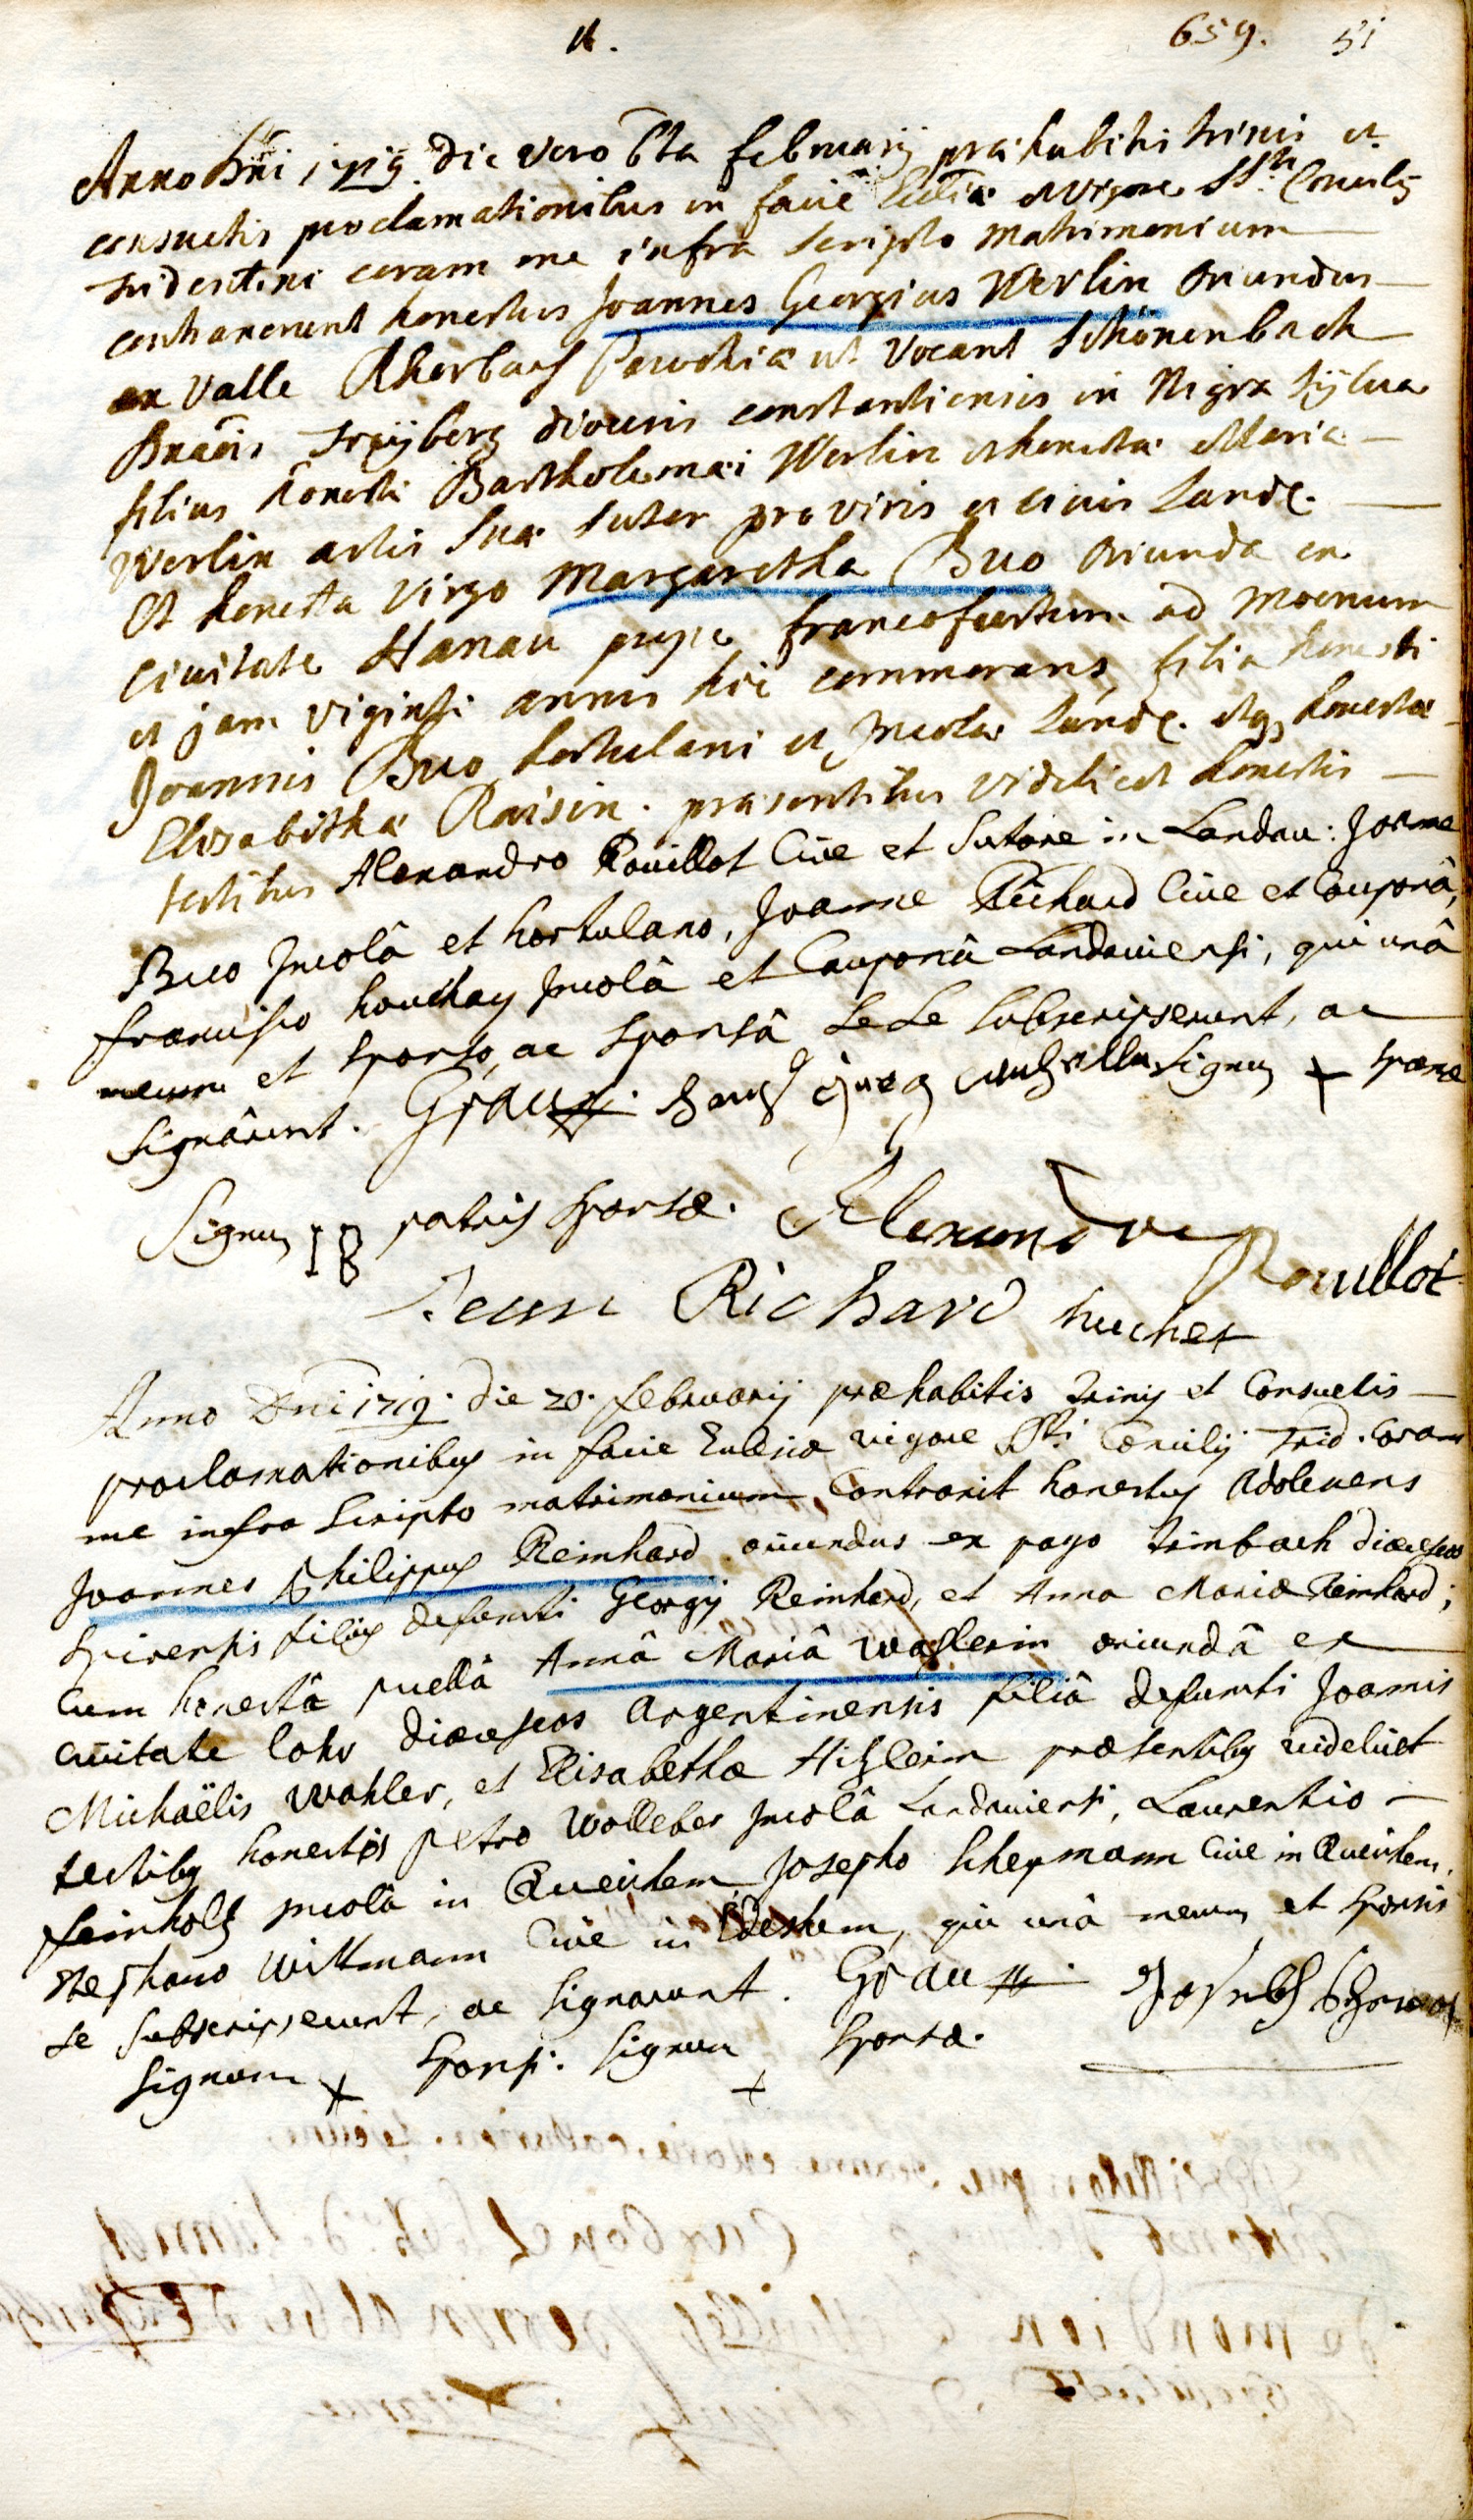 16. 659. 51
Anno Dni 1719. die vero 6ta februarij præhabitis trinis et
consuetis proclamationibus in facie Ecclîæ et vigore Sti. Concilij
tridentini coram me infra scripto matrimonium
contraxerunt honestus Joannes Georgius Werlin oriundus
ex valle Parochiæ ut vocant Schönenbach
Freyberg diœcesis constantiensis in Nigra Sylva
filius honesti Bartholomæi Werlin et honestæ Mariæ
Werlin artis suæ sutor pro viris et civis Landæ.
Et honesta virgo Margaretha Buo oriunda ex
civitate Hanau prope francofurtum ad moenum
et jam viginti annis hic commorans, filia honesti
Joannis Buo hortulani et incolæ Landæ. atq honestæ
Elisabethæ Raisin. præsentibus videlicet honestis
testibus Alexandro Rouillot Cive et Sutore in Landau: Joanne
Buo Incolâ et hortulano, Joanne Richard Cive et Cauponâ,
francisco houchay Incolâ et Cauponâ Landaviensi, qui unâ
mecum et sponso, ac sponsâ sese subscripserunt, ac
signârunt. Grau Signum + sponsæ
Signum IB patris sponsæ. Alexandre Rouillot
Jean Richard huchet
Anno Dni 1719. die 20. februarij præhabitis trinis et Consuetis
proclamationibus in facie Ecclesiæ vigore Sti. Concilij Trid. Coram
me infra scripto matrimonium Contraxit honestus adolescens
Joannes Philippus Reinhard oriundus ex pago Zimbach diœceseos
Spirensis filius defuncti Georgij Reinhard, et Anna Mariæ Reinhard;
Cum honestâ puellâ Annâ Mariâ Wahlerin oriundâ ex
civitate Lohr diœceseos argentinensis filiâ defuncti Joannis
Michaëlis Wahler, et Elisabethæ Hitzlerin præsentibus videlicet
testibus honestis Petro Wolleber Incolâ Landaviensi, Laurentio
feinholtz incolâ in Queichem, Josepho Schermann Cive in Queichem,
Stephano Wittmann Cive in Edeshem, qui unâ mecum et sponsis
se subscripserunt, ac signarunt. Grau Joseph
Signum + sponsi. Signum + sponsæ.